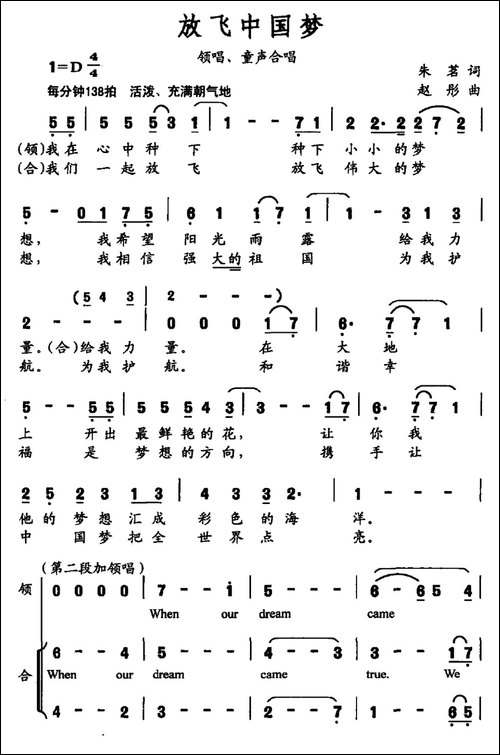 放飞中国梦
领唱、童声合唱
1=D 4/4
朱茗 词
每分钟138拍 活泼、充满朝气地
赵彤 曲
5 5 | 5 5 5 5 3 1 | 1 - - 7 1 | 2 2· 2 2 7 2 |
(领)我在 心中种 下 种下 小小的梦
(合)我们 一起放 飞 放飞 伟大的梦
5 - 0 1 7 5 | 6 1 1 7 1 | 1 - 3 1 3 |
想, 我希望 阳光雨 露 给我力
想, 我相信 强大的祖 国 为我护
(5 4 3 | 2 - - )
2 - - | 0 0 0 1 7 | 6· 7 7 1 |
量。(合)给我力 量。 在 大地
航。 为我护 航。 和 谐幸
5 - - 5 5 | 5 5 5 4 3 | 3 - - 1 7 | 6· 7 7 1 |
上 开出 最鲜艳的花, 让 你我
福 是 梦想的方向, 携 手让
2 5 2 3 1 3 | 4 3 3 2· | 1 - - - |
他的梦想汇成 彩色的海 洋。
中 国梦把全 世界点 亮。
(第二段加领唱)
领 0 0 0 0 | 7 - - i | 5 - - - | 6 - 6 5 4 |
When our dream came
6 - - 4 | 5 - - - | 5 - 4 - | 3 - 3 1 7 |
合 When our dream came true. We
4 - - 2 | 3 - - - | 2 - 2 - | 1 - - 6 5 |